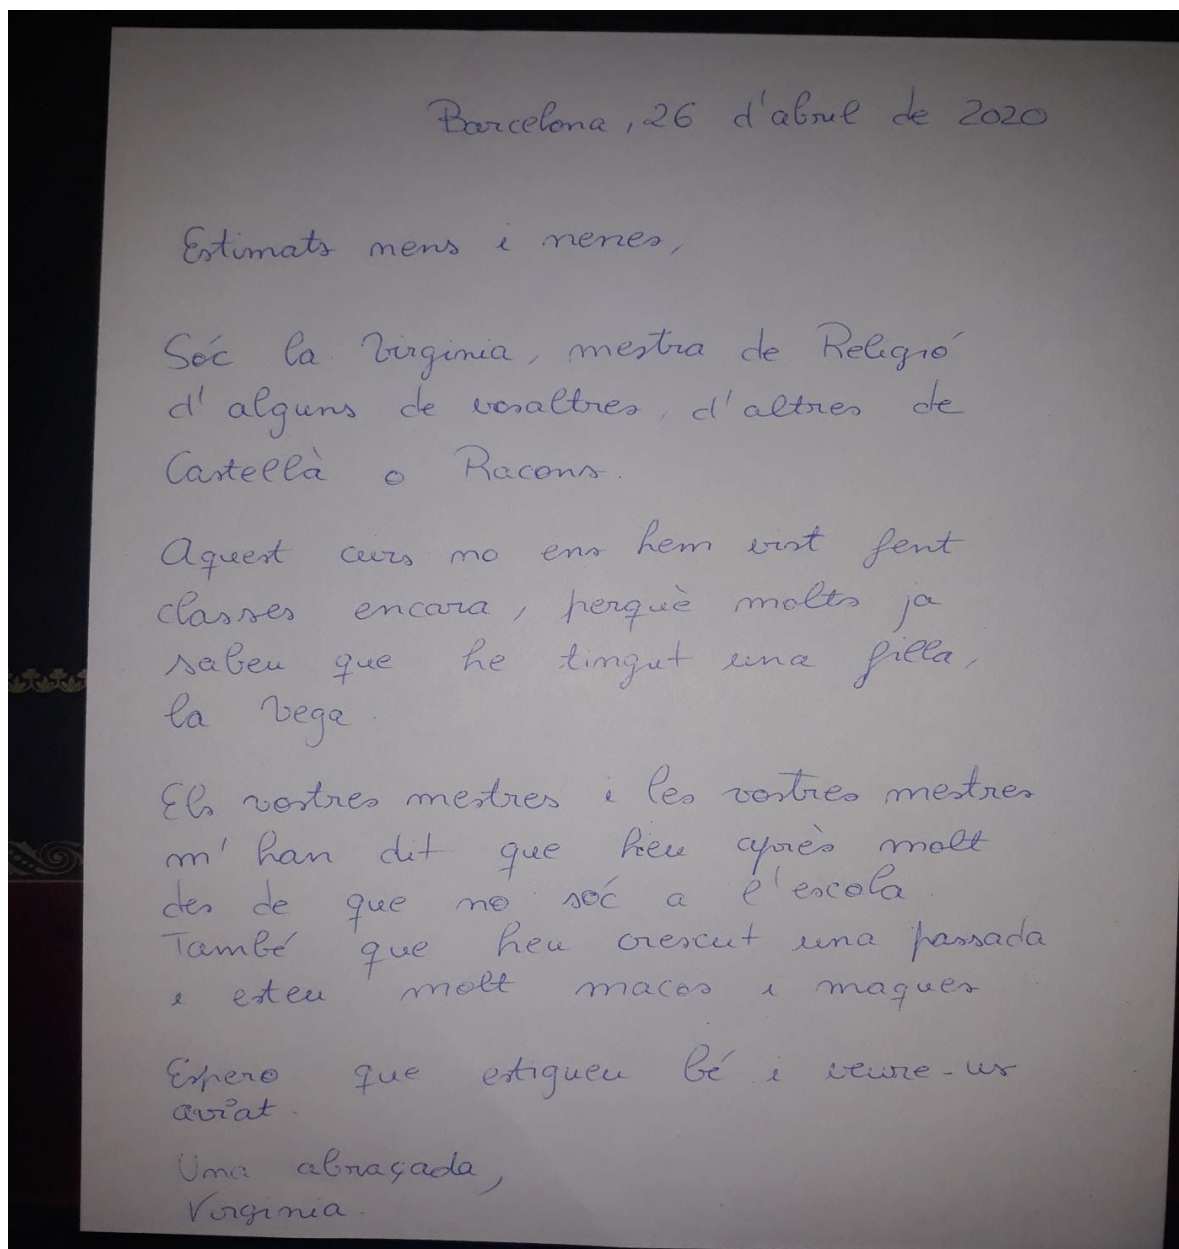 Barcelona, 26 d'abril de 2020
Estimats nens i nenes,
Sóc la Virginia, mestra de Religió
d'alguns de vosaltres, d'altres de
Castellà o Racons.
Aquest curs no ens hem vist fent
classes encara, perquè molts ja
sabeu que he tingut una filla,
la Vega.
Els vostres mestres i les vostres mestres
m'han dit que heu après molt
des de que no sóc a l'escola.
També que heu crescut una passada
i esteu molt macos i maques
Espero que estigueu bé i veure-us
aviat.
Una abraçada,
Virginia.